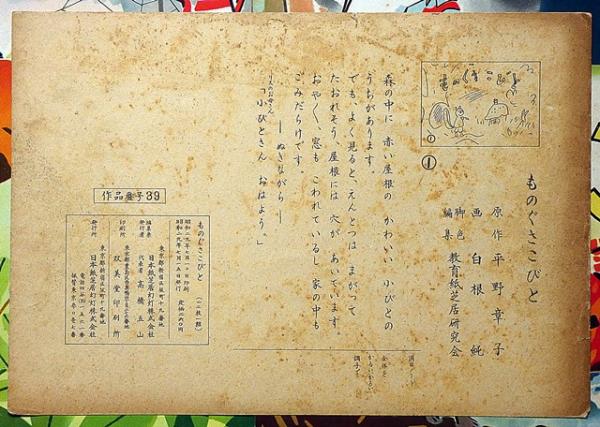 ものぐさこびと
原作 平野章子
画 白根純
脚色
編集 教育紙芝居研究会
①
森の中に 赤い屋根の かわいい 小びとの
うちがあります。
でも、よく見ると、えんとつは まがって
たおれそう、屋根には 穴が あいています。
おやおや、窓も こわれているし 家の中も
ごみだらけです。
―ぬきながら―
「小びとさん おはよう。」
演出ノート
全体を
調子で
作品番号39
ものぐさこびと
(十二枚一組)
昭和二九年七月一〇日印刷
昭和二九年七月一五日発行
編集兼
発行者
日本紙芝居幻灯株式会社
代表者 高橋五山
印刷所
双美堂印刷所
発行所
日本紙芝居幻灯株式会社